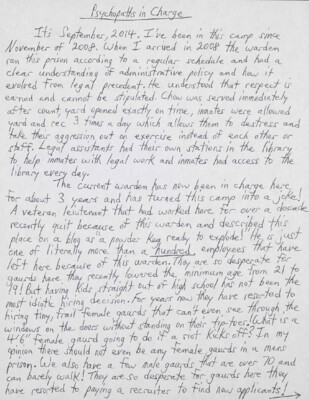 Psychopaths in Charge
It's September, 2014. I've been in this camp since
November of 2008. When I arrived in 2008 the warden
ran this prison according to a regular schedule and had a
clear understanding of administrative policy and how it
evolved from legal precedent. He understood that respect is
earned and cannot be stipulated. Chow was served immediately
after count, yard opened exactly on time, inmates were allowed
yard and rec 3 times a day which allows them to destress and
take their aggression out on exercise instead of each other or
staff. Legal assistants had their own stations in the library
to help inmates with legal work and inmates had access to the
library every day.
The current warden has now been in charge here
for about 3 years and has turned this camp into a joke!
A veteran leiutenant that had worked here for over a decade
recently quit because of this warden and described this
place on a blog as a powder keg ready to explode! He is just
one of literally more than a hundred employees that have
left here because of this warden. They are so desperate for
gaurds here they recently lowered the minimum age from 21 to
19! But having kids straight out of high school has not been the
most idiotic hiring decision. For years now they have resorted to
hiring tiny, frail female gaurds that can't even see through the
windows on the doors without standing on their tip-toes. What is a
4'6" female gaurd going to do if a riot kicks off? In my
opinion there should not even be any female gaurds in a mens
prison. We also have a few male gaurds that are over 70 and
can barely walk! They are so desperate for gaurds here they
have resorted to paying a recruiter to find new applicants!